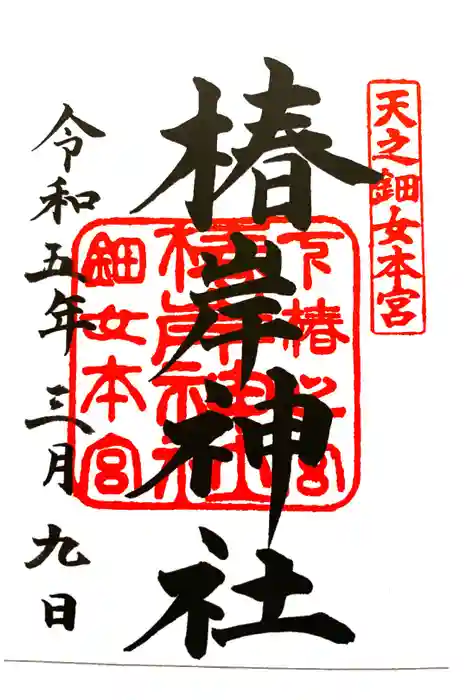 天之鈿女本宮
椿岸神社
下椿之宮
椿岸神社
鈿女本宮
令和五年三月九日